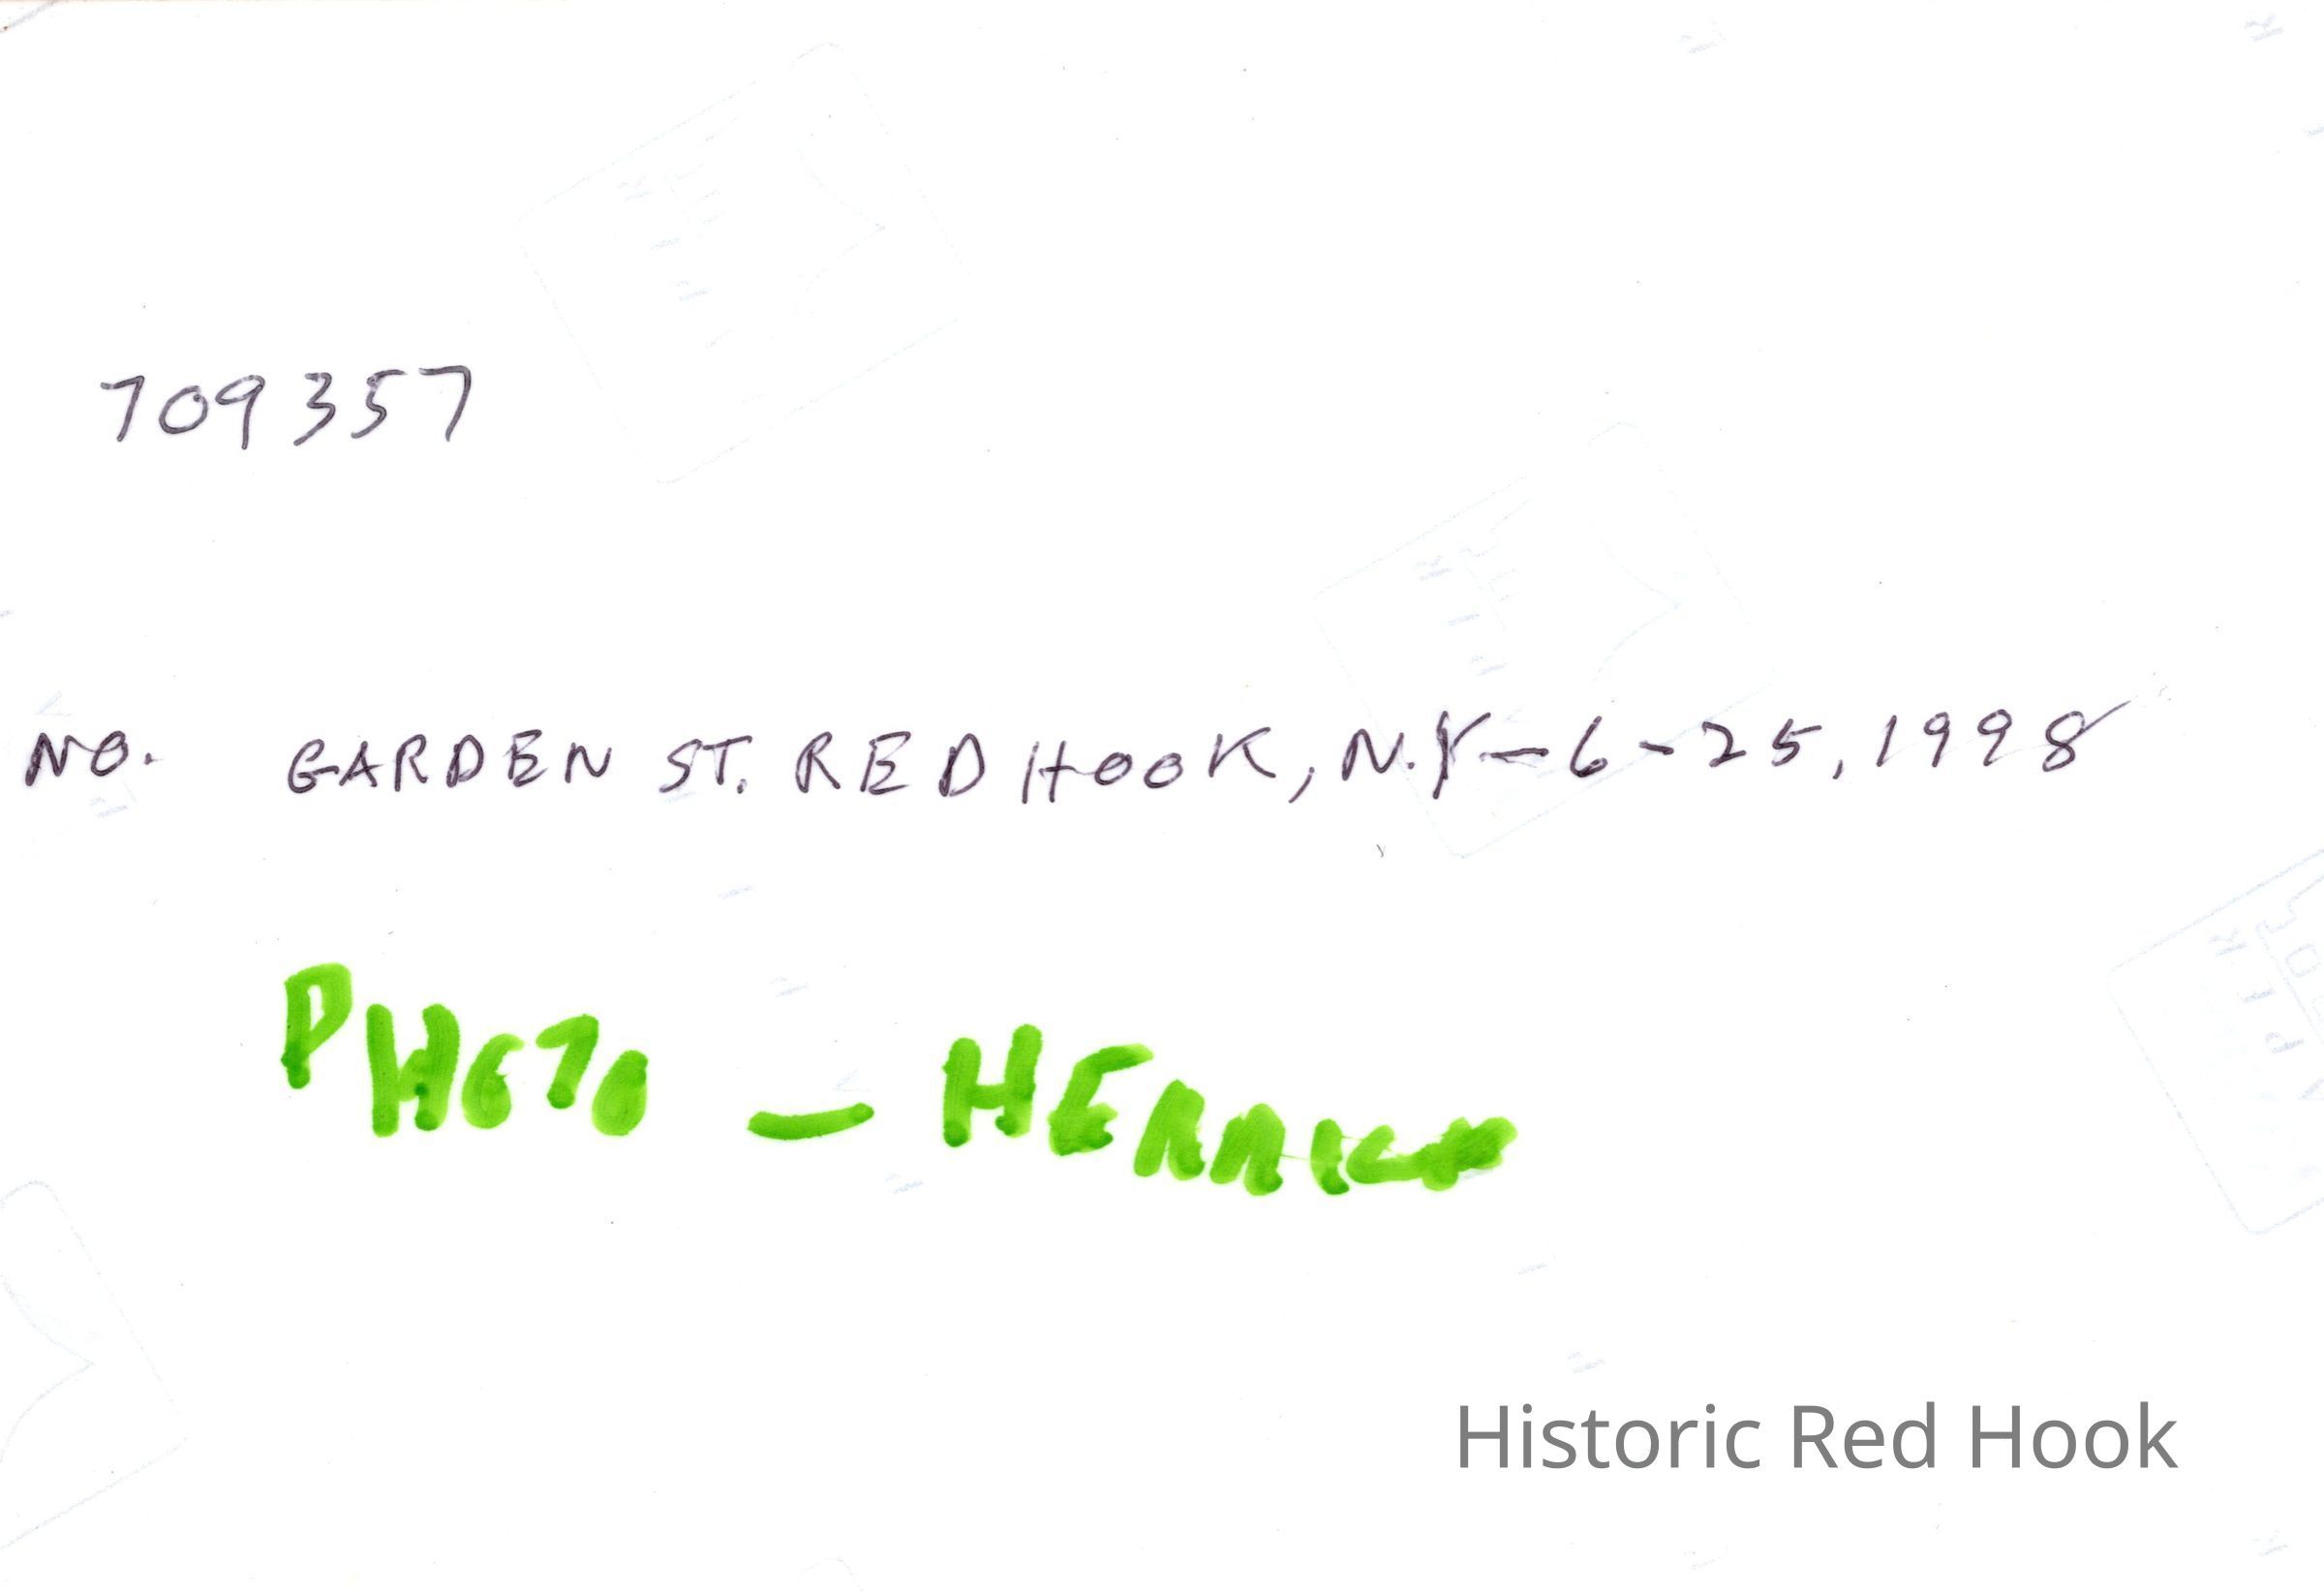 709357
NO. GARDEN ST. RED HOOK, N.Y-6-25, 1998
PHOTO - HERRICK
Historic Red Hook